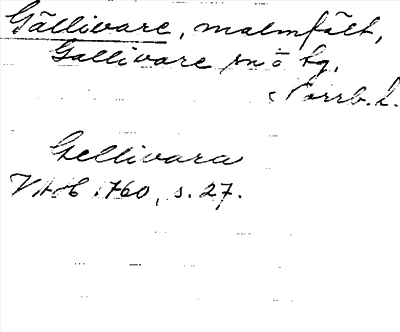 Gällivare, malmfält,
Gällivare sn o kg,
Norrb. l.
Gellivara
1760, s. 27.